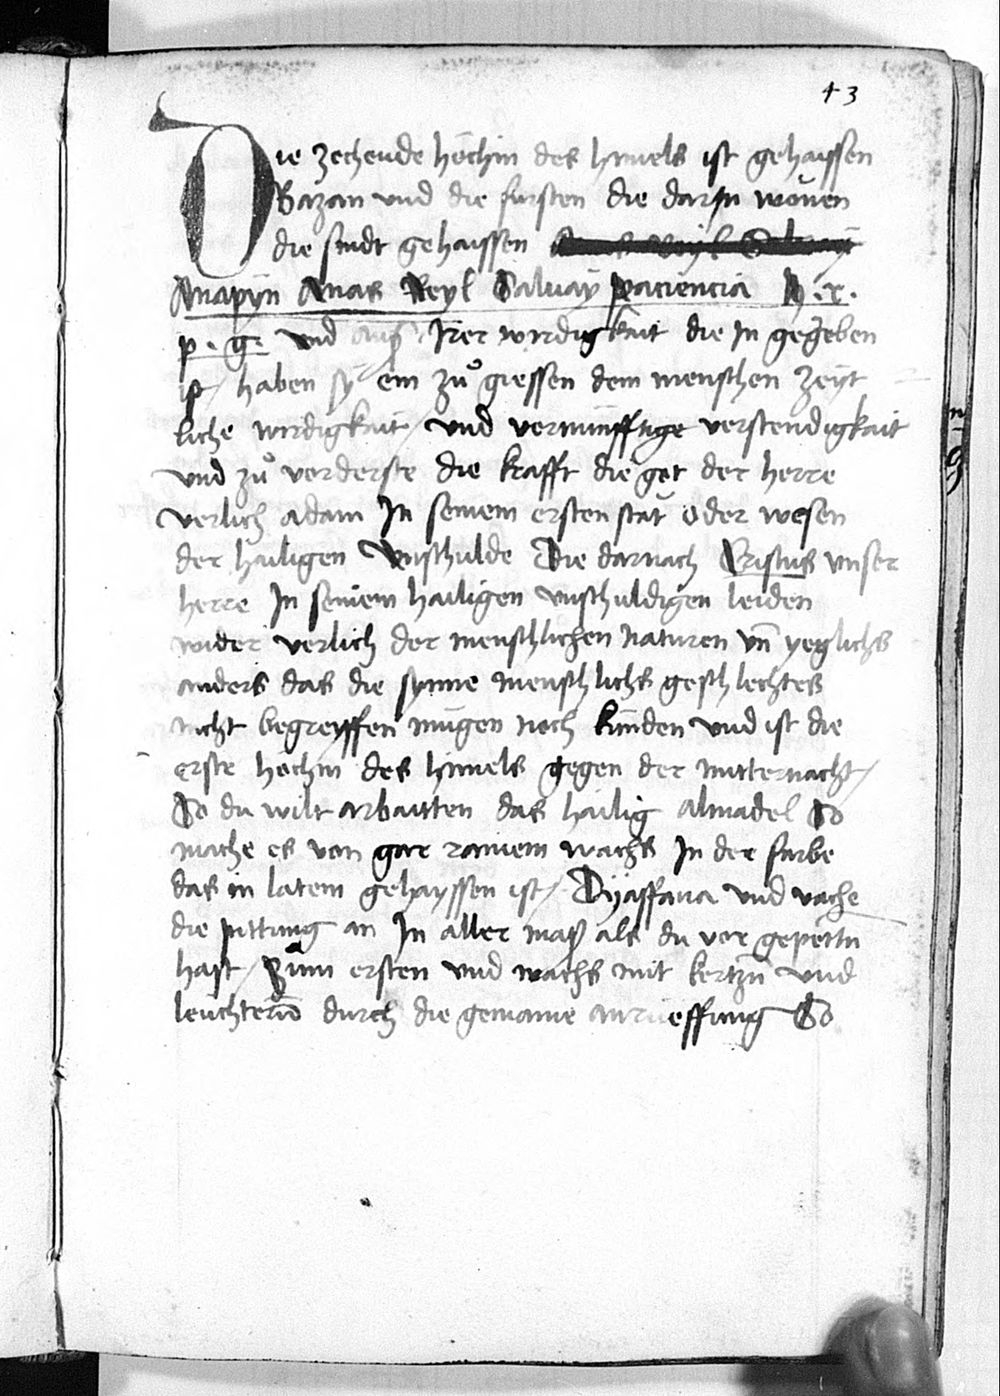 43
Die zechende höchin des himels ist gehaissen
Bazan und die fursten die darjn wonen
die sindt gehaissen
Anapyn Anas Reyl Saluay paciencia h . r .
p . g . und auß Irer wirdigkait die In gegeben
ist / haben sy ein zů giessen dem menschen zeyt
liche wirdigkait / und vernunfftige verstendigkait
und zů vorderste die krafft die got der herre
verlich adam In seinem ersten stat oder wesen
der hailigen Unschulde Die darnach Cristus unser
herre In seinem hailigen unschuldigen leiden
wider verlich der menschlichen Naturen vn̄ yeglichs
anders das die synne menschlichs geschlechtes
nicht begreyffen mugen noch kunden und ist die
erste höchin des himels gegen der mitternacht /
So du wilt arbaitten das hailig almadel So
mache es von gar rainem wachs In der farbe
das in latein gehayssen ist / Dyaffana und vache
die pittung an In aller maß als du vor gepettn
hast / Zum ersten und wachs mit kertzn̄ und
leuchtern̄ durch die gemaine anrueffung So